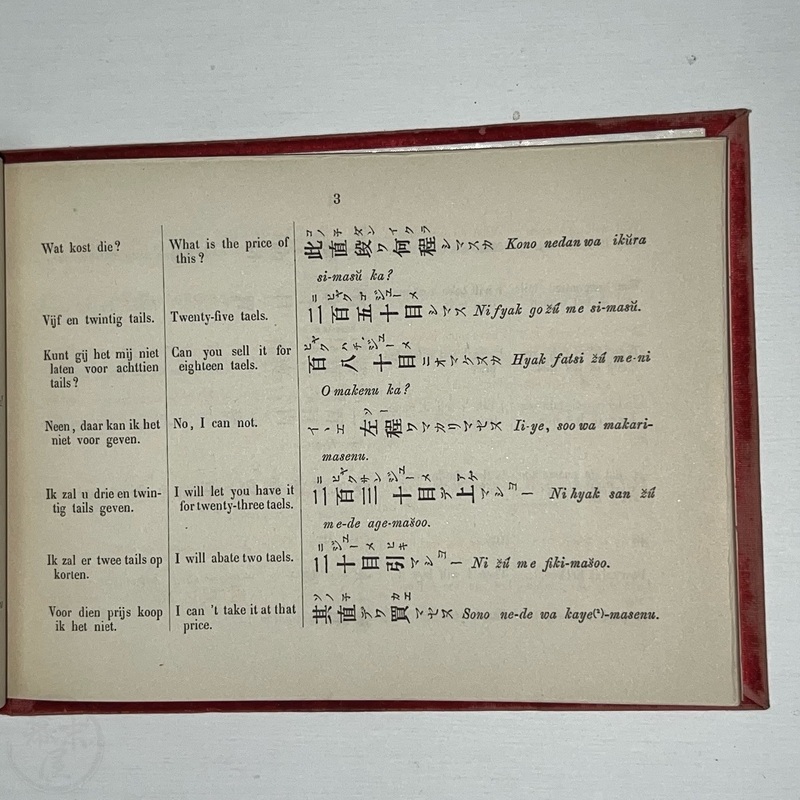 3
Wat kost die?
What is the price of
this?
コノ チ ダン イクラ
此直段ワ何程シマスカ Kono nedan wa ikŭra
si-masŭ ka?
Vijf en twintig tails.
Twenty-five taels.
ニ ヒヤク ゴ ジユー メ
二百五十目シマス Ni fyak go žŭ me si-masŭ.
Kunt gij het mij niet
laten voor achttien
tails?
Can you sell it for
eighteen taels.
ヒヤク ハチ ジユー メ
百八十目ニオマケヌカ Hyak fatsi žŭ me-ni
O makenu ka?
Neen, daar kan ik het
niet voor geven.
No, I can not.
ソー
イヽエ 左程ワマカリマセヌ Ii-ye, soo wa makari-
masenu.
Ik zal u drie en twin-
tig tails geven.
I will let you have it
for twenty-three taels.
ニ ヒヤク サン ジユー メ アゲ
二百三十目デ上マシヨー Ni hyak san žŭ
me-de age-mašoo.
Ik zal er twee tails op
korten.
I will abate two taels.
ニ ジユー メ ヒキ
二十目引マシヨー Ni žŭ me fiki-mašoo.
Voor dien prijs koop
ik het niet.
I can't take it at that
price.
ソノ チ カエ
其直デワ買マセヌ Sono ne-de wa kaye(²)-masenu.